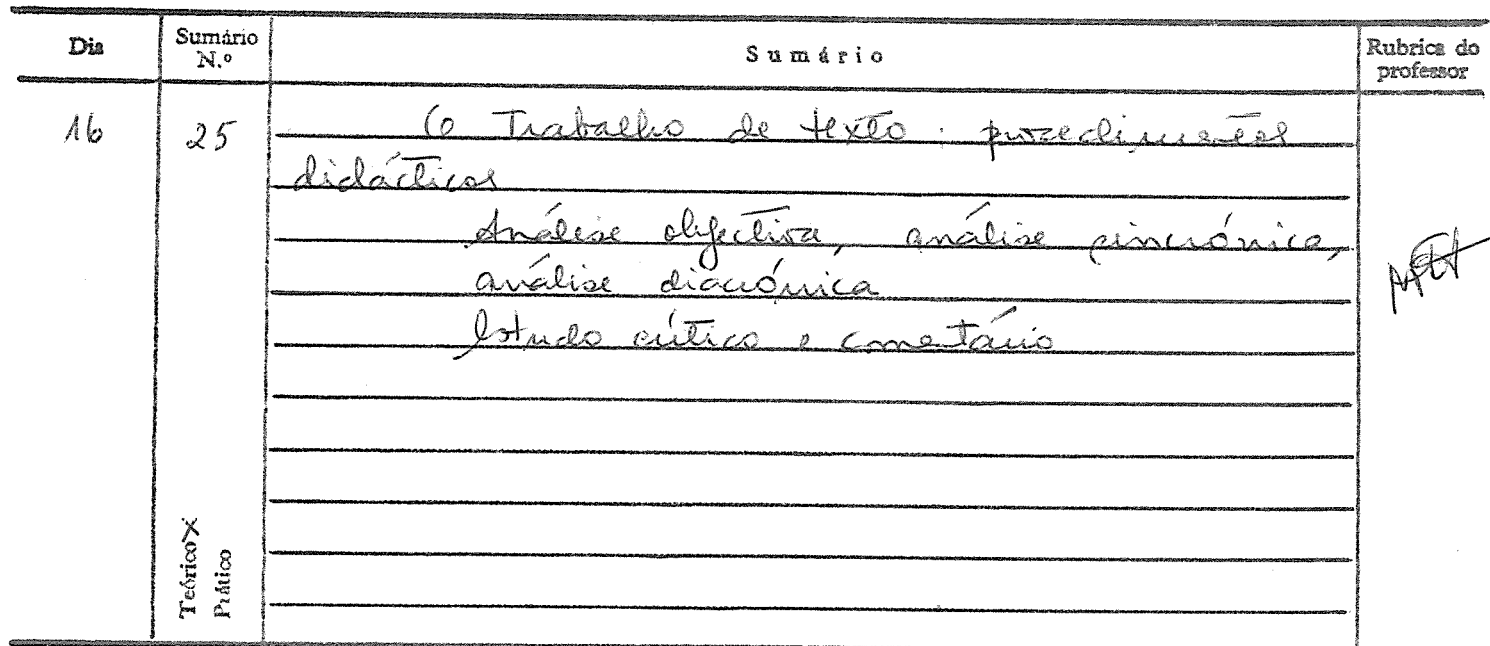 Dia
Sumário N.º
Sumário
Rubrica do professor
16
25
O Trabalho de texto: procedimentos
didácticos
Análise objectiva, análise sincrónica,
análise diacrónica
Estudo crítico e comentário
Teórico X
Prático